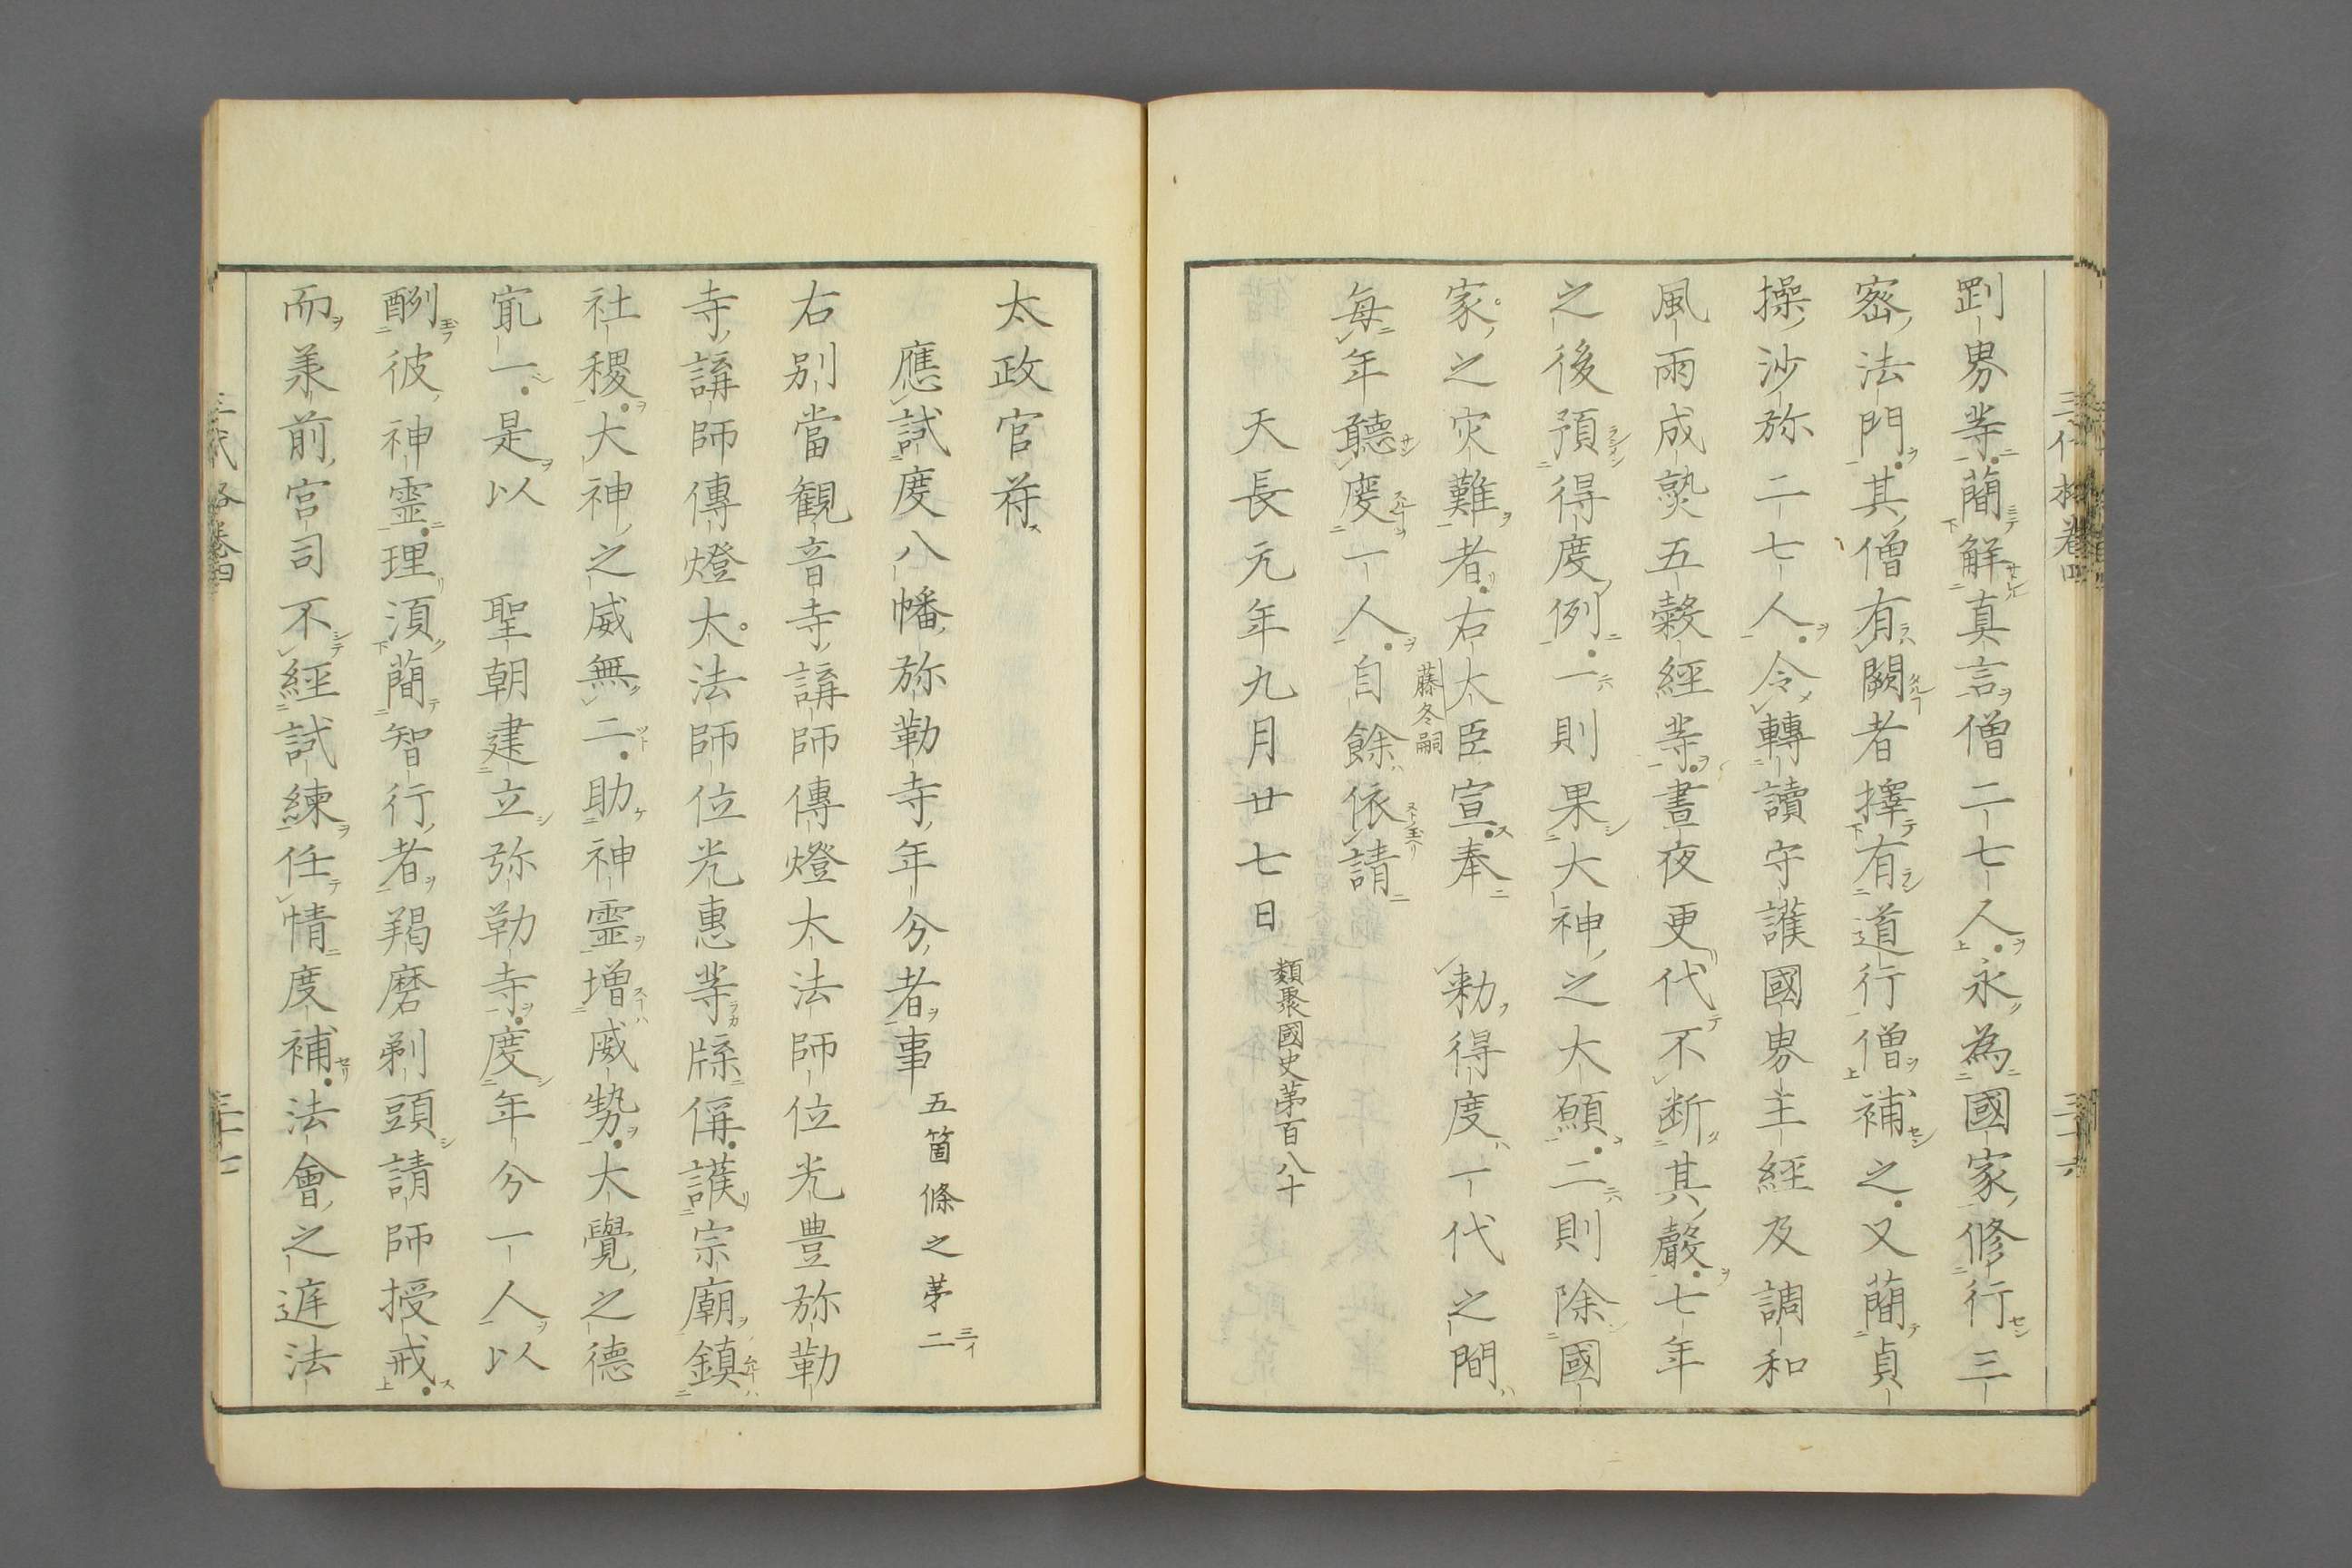 三代格卷四
三十六
剛男等蕳解真言僧二七人永為國家修行三
密法門其僧有闕者擇有道行僧補之又蕳貞
操沙弥二七人令轉讀守護國界主經及調和
風雨成熟五穀經等晝夜更代不断其聲七年
之後預得度例一則果大神之大願二則除國
家之灾難者右大臣宣奉　勅得度一代之間
藤冬嗣
每年聽度一人自餘依請
天長元年九月廿七日
類聚國史第百八十
太政官符
應試度八幡弥勒寺年分者事
五箇條之第二
三イ
右別當観音寺講師傳燈大法師位光豊弥勒
寺講師傳燈大法師位光惠等牒偁護宗廟鎮
社稷大神之威無二助神霊増威勢大覺之德
㝡一是以　聖朝建立弥勒寺度年分一人以
酬彼神霊理須蕳智行者羯磨剃頭請師授戒
而羕前宮司不經試練任情度補法會之遅法
三代格卷四